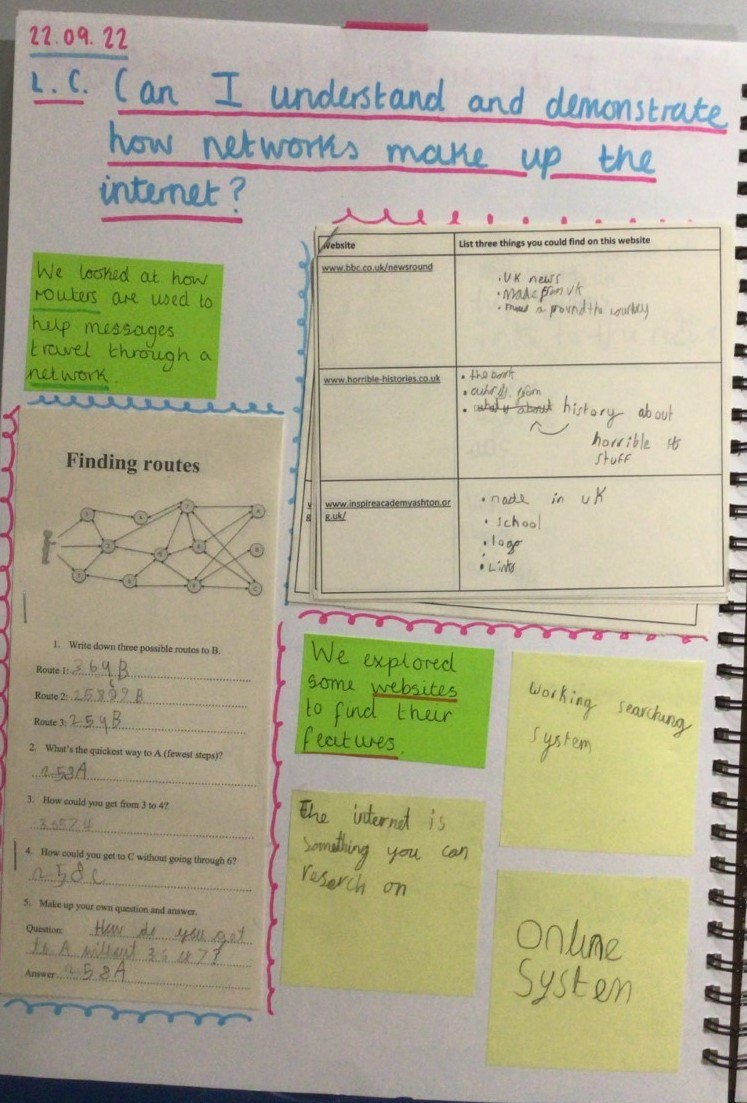 22.09.22
L.C. Can I understand and demonstrate
how networks make up the
internet?
We looked at how
routers are used to
help messages
travel through a
network.
Website
List three things you could find on this website
www.bbc.co.uk/newsround
• UK news
• made from UK
www.horrible-histories.co.uk
• the book
• history about
horrible
stuff
www.inspireacademyashton.or
g.uk/
• made in UK
• school
• logo
• Links
Finding routes
1. Write down three possible routes to B.
Route 1: 369B
Route 2:
Route 3: 259B
2. What's the quickest way to A (fewest steps)?
258A
3. How could you get from 3 to 4?
4. How could you get to C without going through 6?
258C
5. Make up your own question and answer.
Question: How do you get
to A without 36
Answer 258A
We explored
some websites
to find their
features.
Working searching
system
The internet is
something you can
reserch on
Online
System